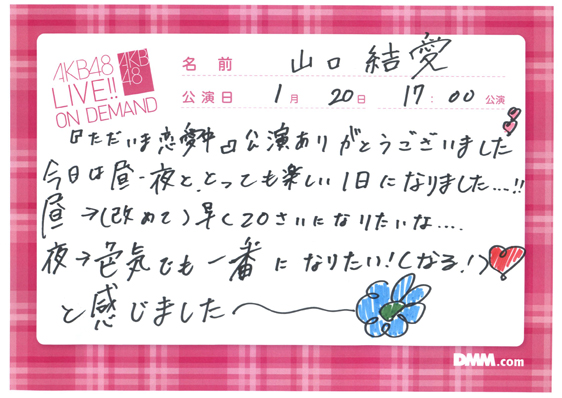 AKB48
LIVE!!
ON DEMAND
AKB
48
名前 山口 結愛
公演日 1月 20日 17:00 公演
『ただいま恋愛中』公演ありがとうございました
今日は昼・夜と、とっても楽しい1日になりました…!!
昼→(改めて)早く20さいになりたいな….
夜→色気でも一番になりたい!(なる!)
と感じました
DMM.com